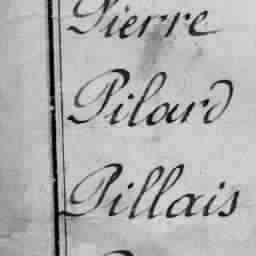 Pierre
Pilard
Pillais